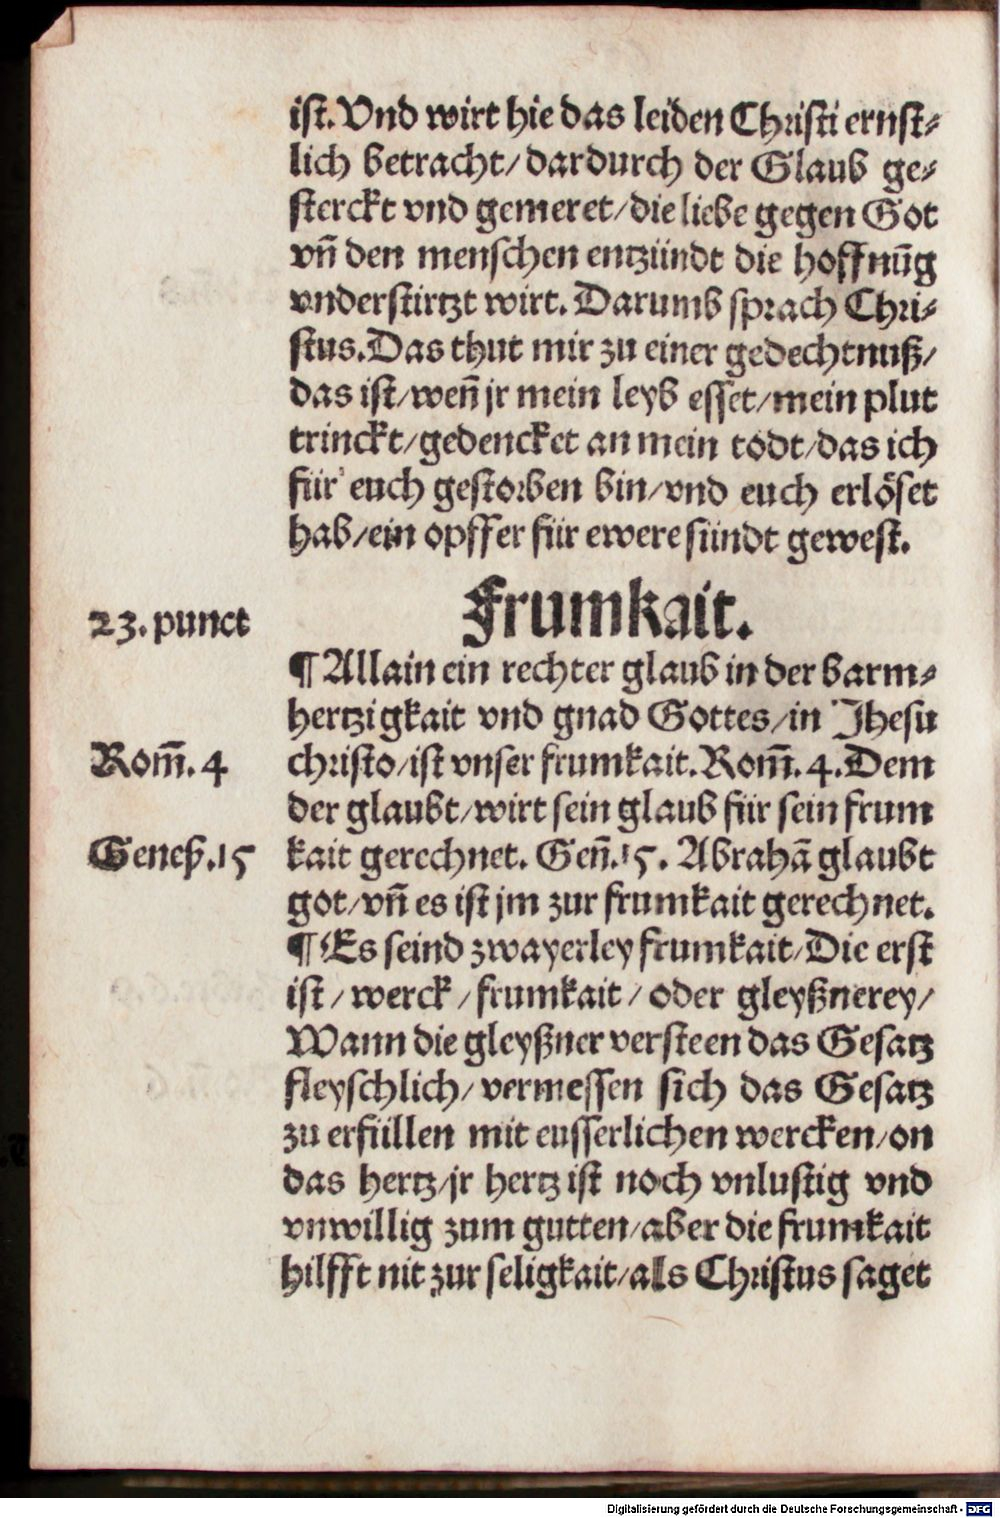 ist. Vnd wirt hie das leiden Christi ernst⸗
lich betracht/ dardurch der Glaub ge⸗
sterckt vnd gemeret/ die liebe gegen Got
vñ den menschen entzündt die hoffnũg
vnderstirtzt wirt. Darumb sprach Chri⸗
stus. Das thut mir zu einer gedechtnuß/
das ist/ weñ jr mein leyb esset/ mein plut
trinckt/ gedencket an mein todt/ das ich
für euch gestorben bin/ vnd euch erlöset
hab/ ein opffer für ewere sündt gewest.
Frumkait.
23. punct
¶ Allain ein rechter glaub in der barm⸗
hertzigkait vnd gnad Gottes/ in Jhesu
Rom̃. 4
christo/ ist vnser frumkait. Rom̃. 4. Dem
der glaubt/ wirt sein glaub für sein frum
Geneß. 15
kait gerechnet. Geñ. 15. Abrahã glaubt
got/ vñ es ist jm zur frumkait gerechnet.
¶ Es seind zwayerley frumkait/ Die erst
ist/ werck/ frumkait/ oder gleyßnerey/
Wann die gleyßner versteen das Gesatz
fleyschlich/ vermessen sich das Gesatz
zu erfüllen mit eusserlichen wercken/ on
das hertz/ jr hertz ist noch vnlustig vnd
vnwillig zum gutten/ aber die frumkait
hilfft nit zur seligkait/ als Christus saget
Digitalisierung gefördert durch die Deutsche Forschungsgemeinschaft - DFG